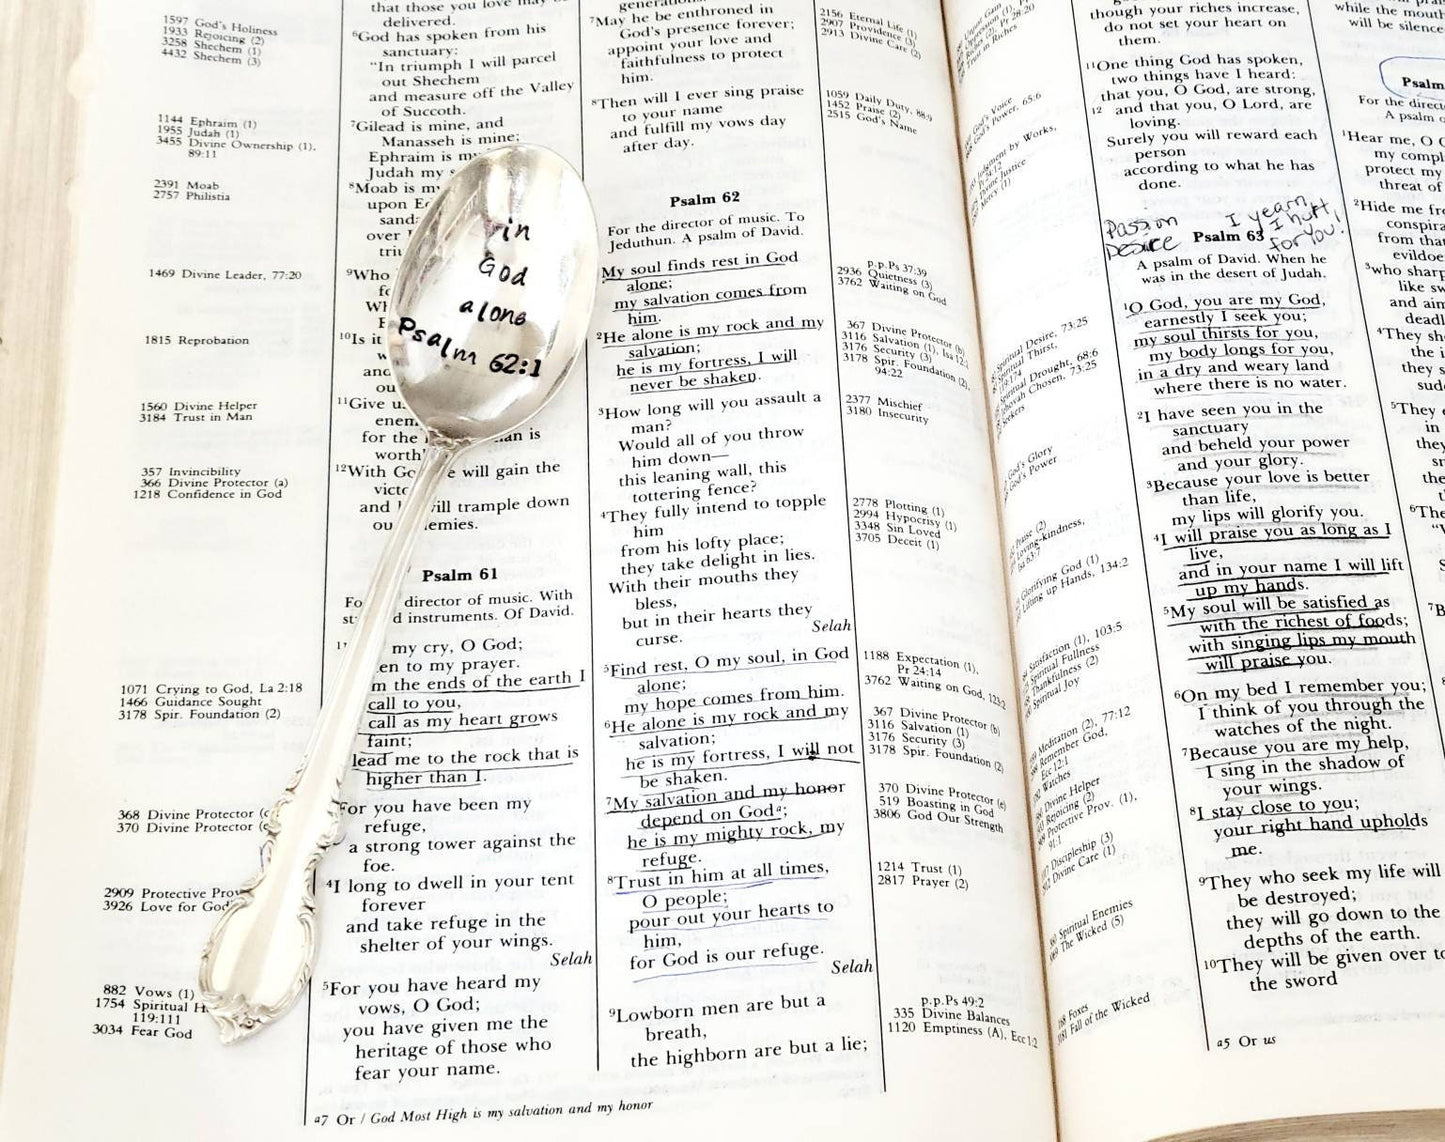 1597 God's Holiness
1933 Rejoicing (2)
3258 Shechem (1)
4432 Shechem (3)
1144 Ephraim (1)
1955 Judah (1)
3455 Divine Ownership (1),
89:11
2391 Moab
2757 Philistia
1469 Divine Leader, 77:20
1815 Reprobation
1560 Divine Helper
3184 Trust in Man
357 Invincibility
366 Divine Protector (a)
1218 Confidence in God
1071 Crying to God, La 2:18
1466 Guidance Sought
3178 Spir. Foundation (2)
368 Divine Protector
370 Divine Protector
2909 Protective
3926 Love for God
882 Vows (1)
1754 Spiritual
119:111
3034 Fear God
that those you love may be
delivered.
6God has spoken from his
sanctuary:
"In triumph I will parcel
out Shechem
and measure off the Valley
of Succoth.
7Gilead is mine, and
Manasseh is mine;
Ephraim is
Judah my
8Moab is
upon
over
9Who
10Is it
and
11Give
for the is
12With will gain the
and will trample down
Psalm 61
director of music. With
instruments. Of David.
my cry, O God;
to my prayer.
the ends of the earth I
call to you,
call as my heart grows
faint;
lead me to the rock that is
higher than I.
For you have been my
refuge,
a strong tower against the
foe.
4I long to dwell in your tent
forever
and take refuge in the
shelter of your wings.
Selah
5For you have heard my
vows, O God;
you have given me the
heritage of those who
fear your name.
a7 Or / God Most High is my salvation and my honor
in
God
alone
Psalm 62:1
7May he be enthroned in
God's presence forever;
appoint your love and
faithfulness to protect
him.
8Then will I ever sing praise
to your name
and fulfill my vows day
after day.
Psalm 62
For the director of music. To
Jeduthun. A psalm of David.
My soul finds rest in God
alone;
my salvation comes from
him.
2He alone is my rock and my
salvation;
he is my fortress, I will
never be shaken.
3How long will you assault a
man?
Would all of you throw
him down—
this leaning wall, this
tottering fence?
4They fully intend to topple
him
from his lofty place;
they take delight in lies.
With their mouths they
bless,
but in their hearts they
curse.
Selah
5Find rest, O my soul, in God
alone;
my hope comes from him.
6He alone is my rock and my
salvation;
he is my fortress, I will not
be shaken.
7My salvation and my honor
depend on Goda;
he is my mighty rock, my
refuge.
8Trust in him at all times,
O people;
pour out your hearts to
him,
for God is our refuge.
Selah
9Lowborn men are but a
breath,
the highborn are but a lie;
2156 Eternal Life (1)
2907 Providence (3)
2913 Divine Care (2)
1059 Daily Duty, 88:9
1452 Praise (2)
2515 God's Name
p.p.Ps 37:39
2936 Quietness (3)
3762 Waiting on God
367 Divine Protector (b)
3116 Salvation (1), Isa 12:2
3176 Security (3)
3178 Spir. Foundation (2),
94:22
2377 Mischief
3180 Insecurity
2778 Plotting (1)
2994 Hypocrisy (1)
3348 Sin Loved
3705 Deceit (1)
1188 Expectation (1),
Pr 24:14
3762 Waiting on God, 123:2
367 Divine Protector (b)
3116 Salvation (1)
3176 Security (3)
3178 Spir. Foundation (2)
370 Divine Protector (e)
519 Boasting in God
3806 God Our Strength
1214 Trust (1)
2817 Prayer (2)
p.p.Ps 49:2
335 Divine Balances
1120 Emptiness (A), Ecc 1:2
God's Voice
God's Power, 65:6
Judgment by Works,
Divine Justice
Mercy (1)
Spiritual Desire, 73:25
Spiritual Thirst,
Spiritual Drought, 68:6
Jehovah Chosen, 73:25
Seekers
God's Glory
God's Power
Praise (2)
Loving-kindness,
Isa 63:7
Glorifying God (1)
Lifting up Hands, 134:2
Satisfaction (1), 103:5
Spiritual Fullness
Thankfulness (2)
Spiritual Joy
Meditation (2), 77:12
Remember God,
Ecc 12:1
Watches
Divine Helper
Rejoicing (2)
Protective Prov. (1),
91:1
Discipleship (3)
Divine Care (1)
Spiritual Enemies
The Wicked (5)
Foxes
Fall of the Wicked
though your riches increase,
do not set your heart on
them.
11One thing God has spoken,
two things have I heard:
that you, O God, are strong,
12 and that you, O Lord, are
loving.
Surely you will reward each
person
according to what he has
done.
Passion
Desire
I yearn,
I hurt,
for You!
Psalm 63
A psalm of David. When he
was in the desert of Judah.
1O God, you are my God,
earnestly I seek you;
my soul thirsts for you,
my body longs for you,
in a dry and weary land
where there is no water.
2I have seen you in the
sanctuary
and beheld your power
and your glory.
3Because your love is better
than life,
my lips will glorify you.
4I will praise you as long as I
live,
and in your name I will lift
up my hands.
5My soul will be satisfied as
with the richest of foods;
with singing lips my mouth
will praise you.
6On my bed I remember you;
I think of you through the
watches of the night.
7Because you are my help,
I sing in the shadow of
your wings.
8I stay close to you;
your right hand upholds
me.
9They who seek my life will
be destroyed;
they will go down to the
depths of the earth.
10They will be given over to
the sword
a5 Or us
while the mouth
will be silence
Psalm
For the direct
A psalm
1Hear me, O
my compl
protect my
threat of
2Hide me fr
conspir
from that
evildoe
3who sharp
like sw
and aim
deadl
4They sh
the i
they s
5They
in
they
the